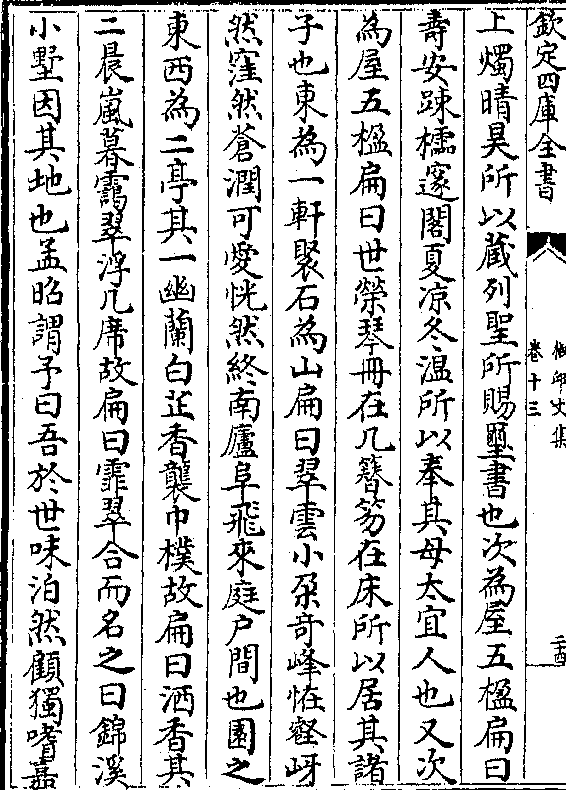 欽定四庫全書
卷十三
上燭晴昊所以藏列聖所賜璽書也次為屋五楹扁曰
壽安踈櫺邃閣夏凉冬温所以奉其母太宜人也又次
為屋五楹扁曰世榮琴冊在几簪笏在床所以居其諸
子也東為一軒聚石為山扁曰翠雲小朶奇峰恠壑岈
然窪然蒼潤可愛恍然終南廬阜飛來庭戶間也園之
東西為二亭其一幽蘭白芷香襲巾襆故扁曰洒香其
二晨嵐暮靄翠浮几席故扁曰霏翠合而名之曰錦溪
小墅因其地也孟昭謂予曰吾於世味泊然顧獨嗜嘉